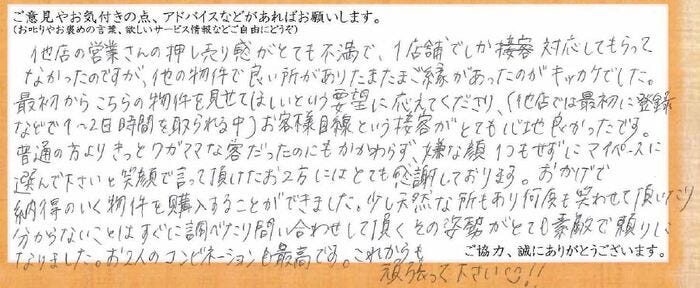 ご意見やお気付きの点、アドバイスなどがあればお願いします。
(お叱りやお褒めの言葉、欲しいサービス情報などご自由にどうぞ)
他店の営業さんの押し売り感がとても不満で、1店舗でしか接客対応してもらって
なかったのですが、他の物件で良い所がありたまたまご縁があったのがキッカケでした。
最初からこちらの物件を見せてほしいという要望に応えてくださり、(他店では最初に登録
などで1~2日時間を取られる中)お客様目線という接客がとても心地良かったです。
普通の方よりきっとワガママな客だったのにもかかわらず、嫌な顔1つもせずにマイペースに
選んで下さいと笑顔で言って頂けたお2方にはとても感謝しております。おかげで
納得のいく物件を購入することができました。少し天然な所もあり何度も笑わせて頂いたり
分からないことはすぐに調べたり問い合わせして頂くその姿勢がとても素敵で頼りに
なりました。お2人のコンビネーションも最高です。これからも
頑張って下さい!!
ご協力、誠にありがとうございます。